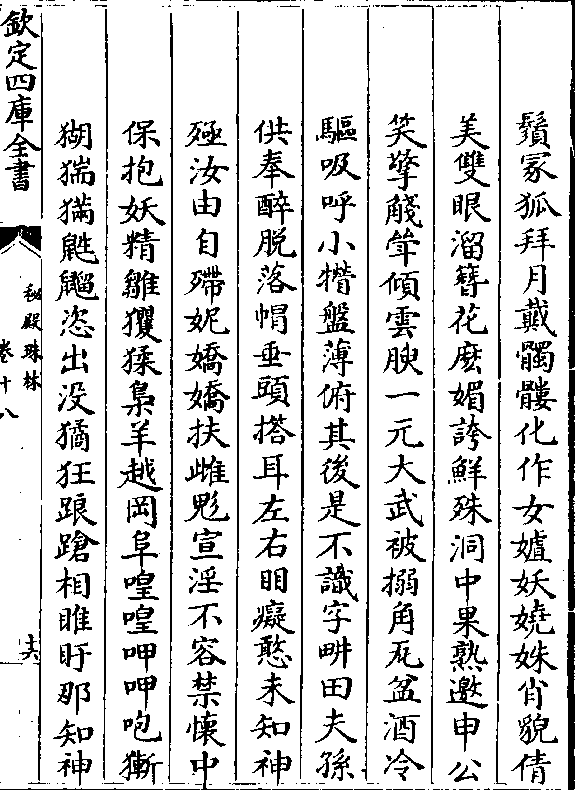 鬚冢狐拜月戴髑髏化作女嬧妖嬈姝肖貌倩
美雙眼溜簪花麽媚誇鮮殊洞中果熟邀申公
笑擎觴聳傾雲腴一元大武被搦角瓦盆酒冷
驅吸呼小㹱盤薄俯其後是不識字畊田夫孫
供奉醉脱落帽垂頭搭耳左右眀癡憨未知神
殛汝由自殢妮嬌嬌扶雌鬽宣淫不容禁懷中
保抱妖精雛玃猱梟羊越岡阜喤喤呷呷咆獑
猢猯㺑鼪鼯恣出没獝狂踉蹌相睢盱那知神
欽定四庫全書
秘殿珠林
卷十八
六